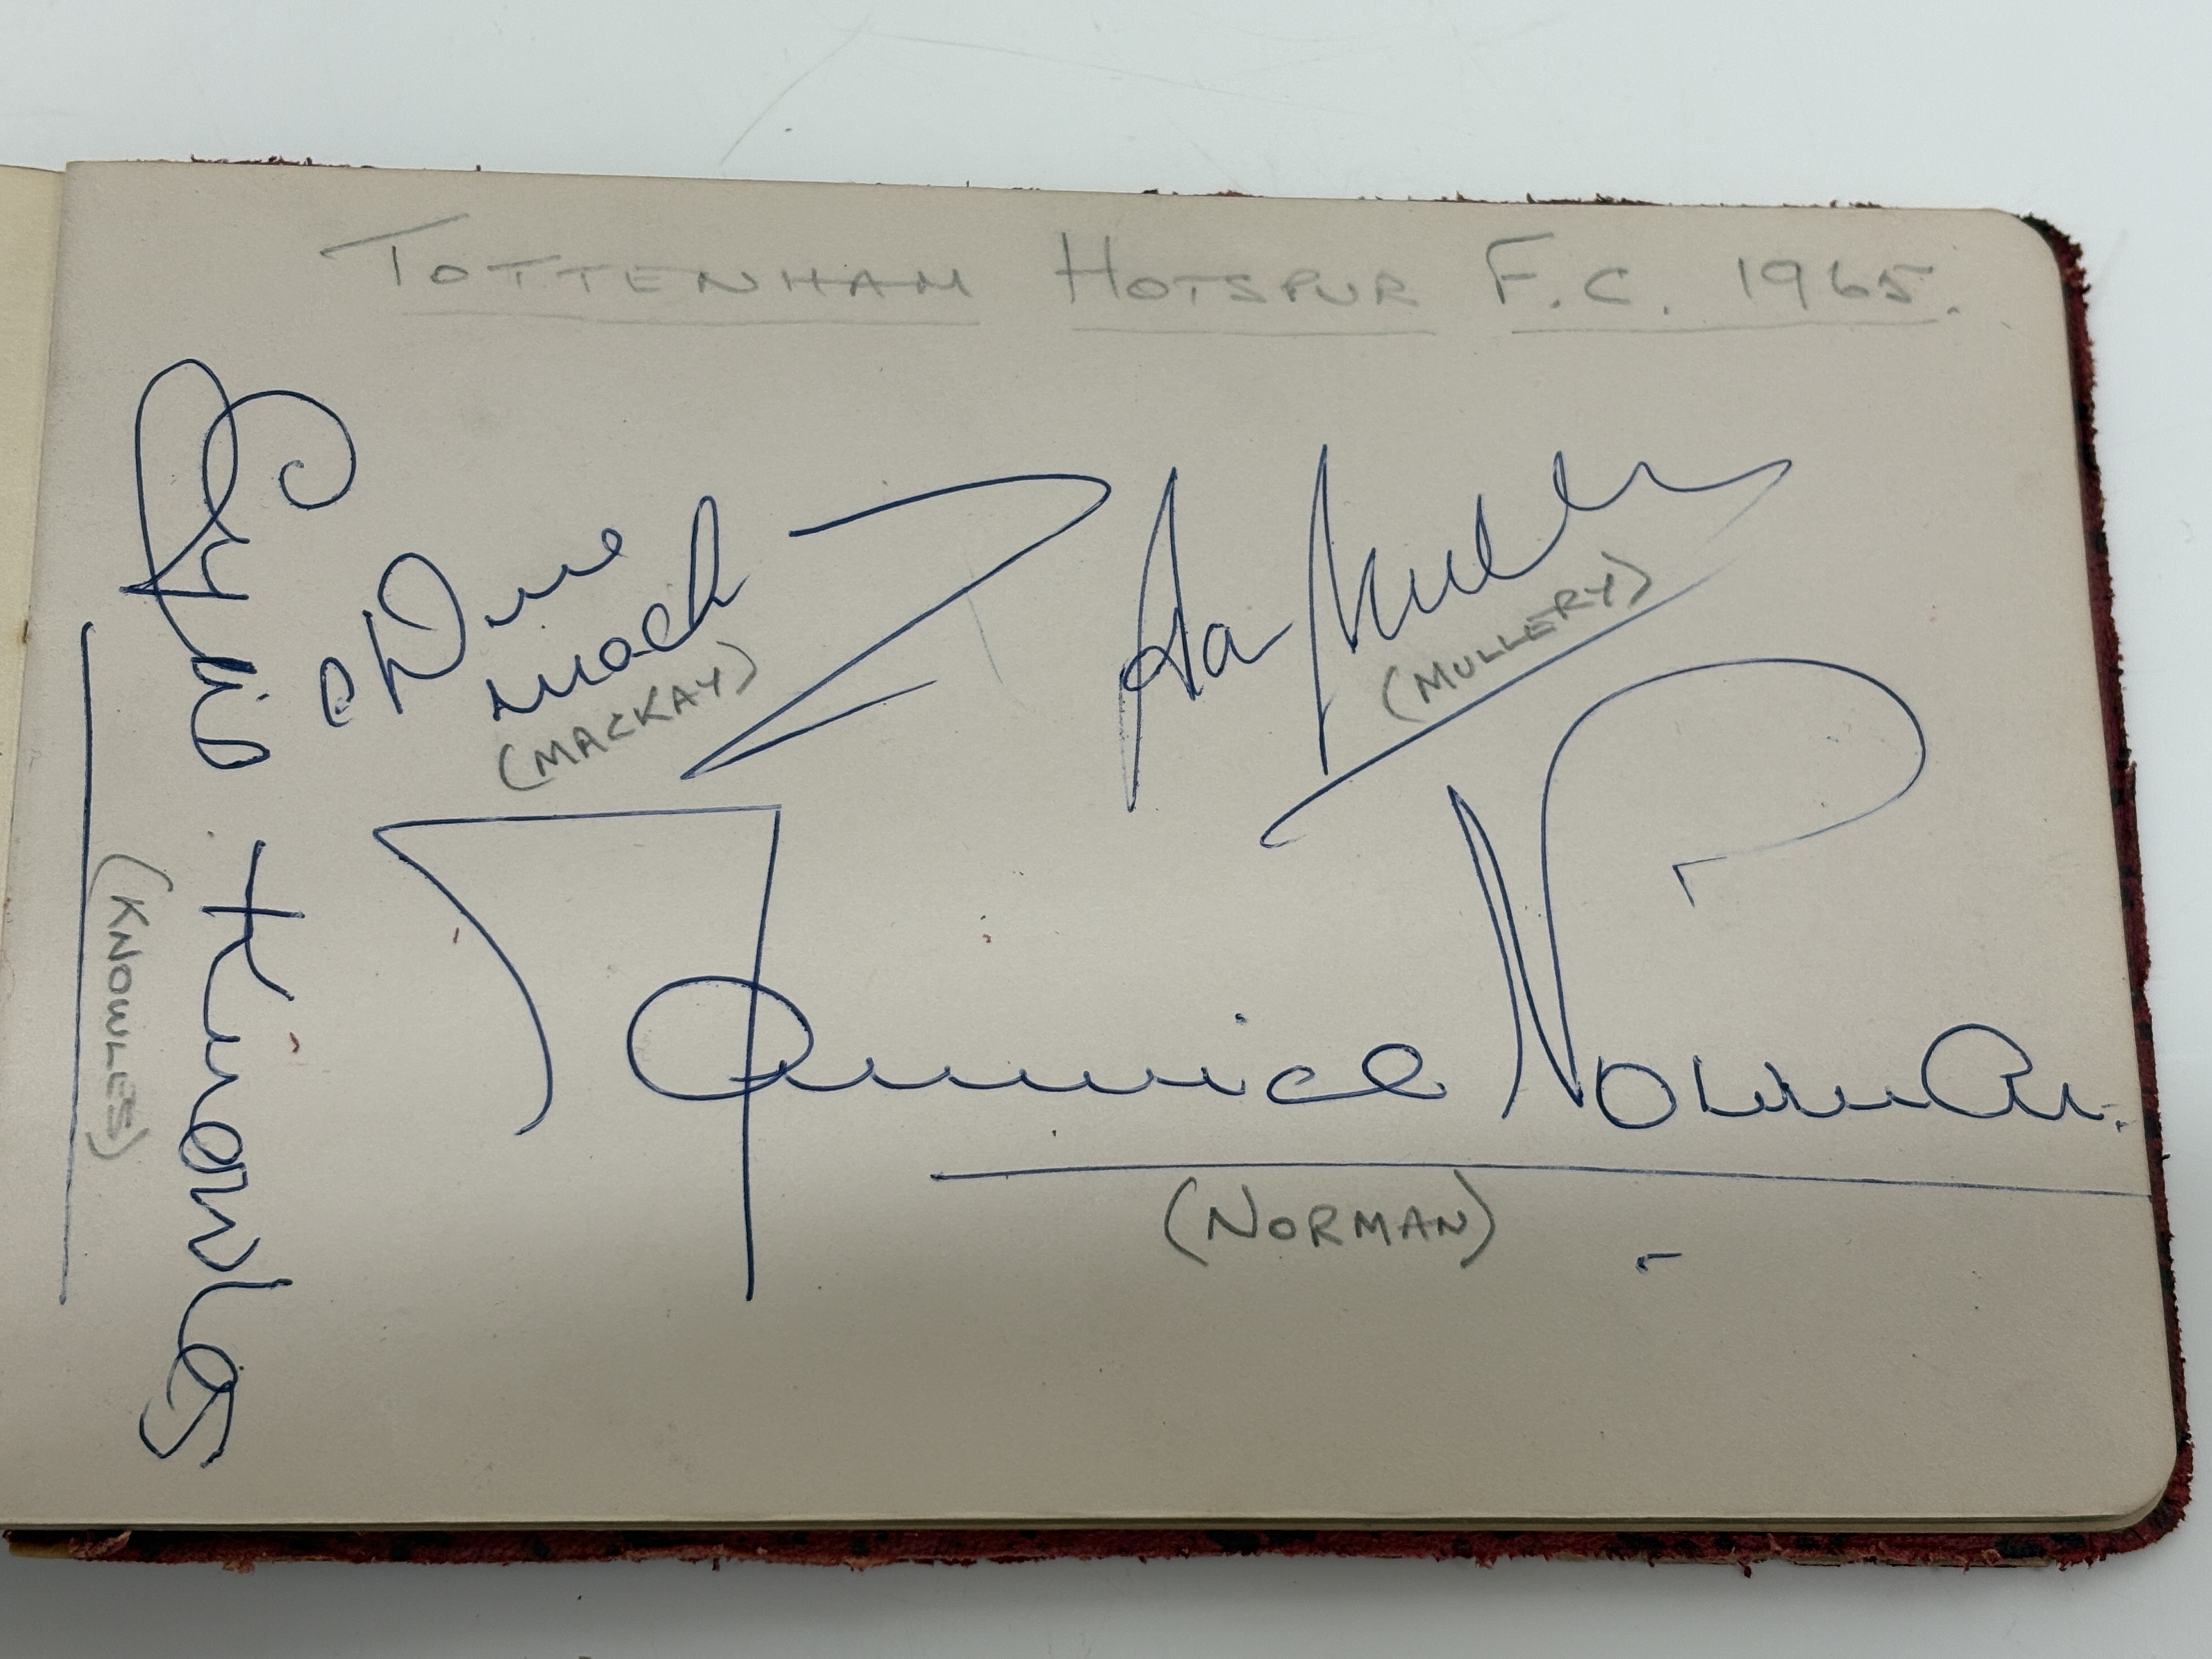 TOTTENHAM HOTSPUR F.C. 1965.
Cyril Knowles
(KNOWLES)
Dave
Mack
(MACKAY)
Alan Mullery
(MULLERY)
Maurice Norman.
(NORMAN)